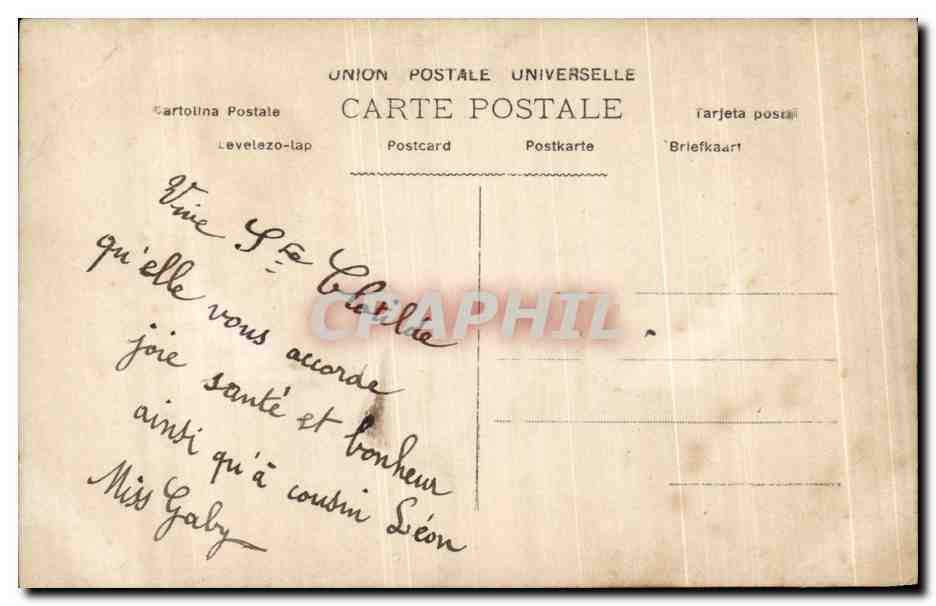 UNION POSTALE UNIVERSELLE
CARTE POSTALE
Cartolina Postale Tarjeta postal
Levelezo-lap Postcard Postkarte Briefkaart
Vive Ste Clotilde
qu'elle vous accorde
joie santé et bonheur
ainsi qu'à cousin Léon
Miss Gaby
CPAPHIL